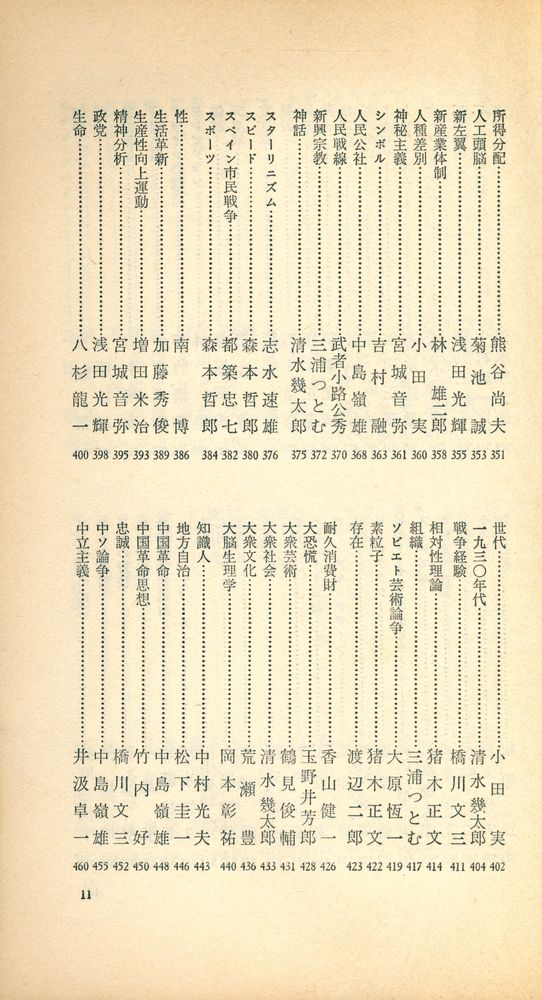 所得分配……熊谷尚夫 351
人工頭脳……菊池誠 353
新左翼……浅田光輝 355
新産業体制……林雄二郎 358
人種差別……小田実 360
神秘主義……宮城音弥 361
シンボル……吉村融 363
人民公社……中島嶺雄 368
人民戦線……武者小路公秀 370
新興宗教……三浦つとむ 372
神話……清水幾太郎 375
スターリニズム……志水速雄 376
スピード……森本哲郎 380
スペイン市民戦争……都築忠七 382
スポーツ……森本哲郎 384
性……南博 386
生活革新……加藤秀俊 389
生産性向上運動……増田米治 393
精神分析……宮城音弥 395
政党……浅田光輝 398
生命……八杉龍一 400
世代……小田実 402
一九三〇年代……清水幾太郎 404
戦争経験……橋川文三 411
相対性理論……猪木正文 414
組織……三浦つとむ 417
ソビエト芸術論争……大原恆一 419
素粒子……猪木正文 422
存在……渡辺二郎 423
耐久消費財……香山健一 426
大恐慌……玉野井芳郎 428
大衆芸術……鶴見俊輔 431
大衆社会……清水幾太郎 433
大衆文化……荒瀬豊 436
大脳生理学……岡本彰祐 440
知識人……中村光夫 443
地方自治……松下圭一 446
中国革命……中島嶺雄 448
中国革命思想……竹内好 450
忠誠……橋川文三 452
中ソ論争……中島嶺雄 455
中立主義……井汲卓一 460
11